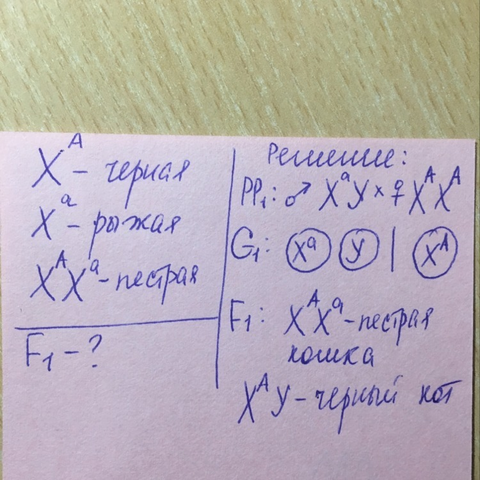 X^A - черная
X^a - рыжая
X^A X^a - пестрая
F₁ - ?
Решение:
PP₁: ♂ X^a У × ♀ X^A X^A
G₁: X^a У | X^A
F₁: X^A X^a - пестрая
кошка
X^A У - черный кот